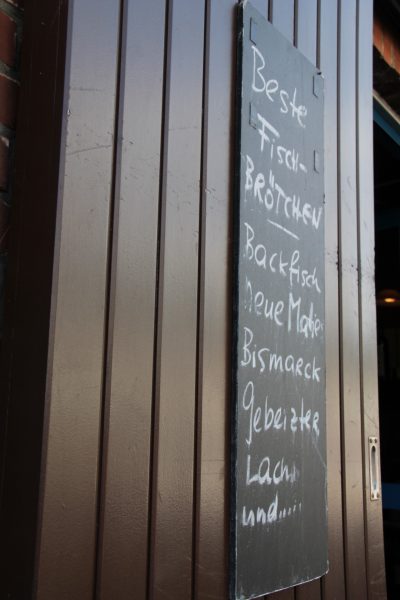 Beste
Fisch-
BRÖTCHEN
Backfisch
neue Matjes
Bismarck
Gebeizter
Lachs
und.....